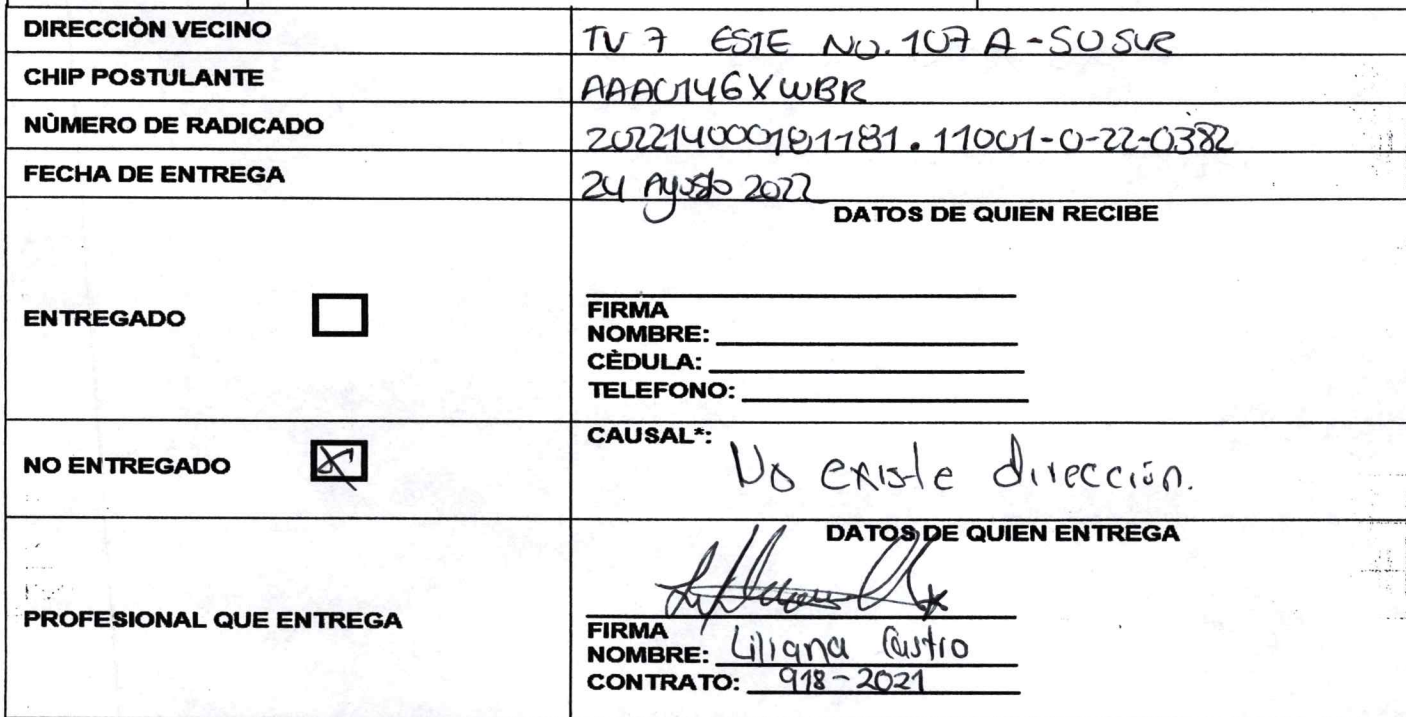 DIRECCIÒN VECINO TV 7 ESTE No. 107 A - 50 SUR
CHIP POSTULANTE AAA0146XWBR
NÙMERO DE RADICADO 202214000181181. 11001-0-22-0382
FECHA DE ENTREGA 24 Agosto 2022
DATOS DE QUIEN RECIBE
ENTREGADO
FIRMA
NOMBRE:
CÈDULA:
TELEFONO:
NO ENTREGADO X CAUSAL*: No existe dirección.
DATOS DE QUIEN ENTREGA
PROFESIONAL QUE ENTREGA
FIRMA
NOMBRE: Liliana Castro
CONTRATO: 918-2021